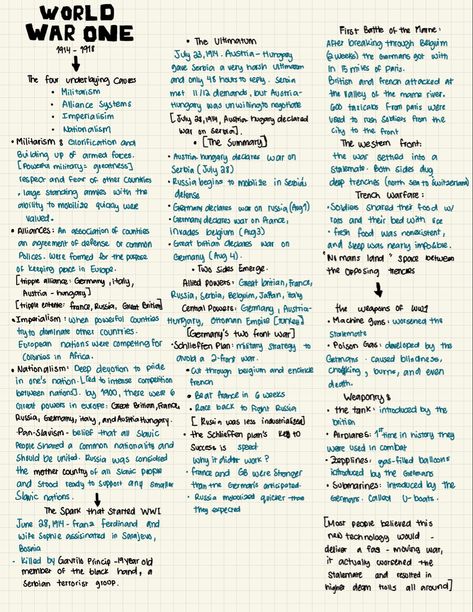 WORLD
WAR ONE
1914 - 1918
The four underlaying Causes
• Militarism
• Alliance Systems
• Imperialism
• Nationalism
• Militarism & Glorification and
Building up of armed forces.
[Powerful military = greatness]
respect and fear of other countries
, large standing armies with the
ability to mobilize quickly were
Valued.
• Alliances: An association of countries
an agreement of defense or common
Polices. Were formed for the purpose
of keeping peace in Europe.
[tripple alliance: Germany, italy,
Austria - hungary]
[tripple entente: france, Russia, Great Britian]
• Imperialism: When powerful countries
try to dominate other countries.
European nations were competing for
Colonies in Africa.
• Nationalism: Deep devotion to pride
in one's nation. [led to intense competition
between nations]. by 1900, there were 6
Great powers in europe: Great Britian, France,
Russia, Germany, italy, and Austria Hungary.
Pan-Slavism - belief that all Slavic
People shared a common nationality and
Should be united. Russia was considered
the mother country of all Slavic people
and stood ready to support any smaller
Slavic nations.
The Spark that started WWI
June 28, 1914 - Franz ferdinand and
wife Sophie assisinated in Sarajevo,
Bosnia
- killed by Gavrilo Princip - 19 year old
member of the black hand, a
Serbian terrorist group.
• The Ultimatum
July 23, 1914. Austria - Hungary
gave Serbia a very harsh ultimatum
and only 48 hours to reply. Serbia
met 11/12 demands, but Austria-
Hungary was unwilling to negotiate
[July 28, 1914, Austria Hungary declared
war on Serbia].
• [The Summary]
• Austria hungary declares war on
Serbia (July 28)
• Russia begins to mobilize in Serbias
defense
• Germany declares war on russia (Aug 1)
• Germany declares war on france,
invades belgium (Aug 3)
• Great britian declares war on
Germany (Aug 4).
• Two sides Emerge.
Allied powers: Great britian, france,
Russia, Serbia, Belgium, Japan, italy
Central Powers: Germany, Austria-
Hungary, Ottoman Empire [turkey]
[Germany's two front war]
• Schlieffen Plan: military strategy to
avoid a 2-front war.
• Cut through belgium and encircle
french
• Beat france in 6 weeks
• Race back to fight Russia
[Russia was less industrialised]
• the Schlieffen plan's key to
Success is speed
Why it didn't work?
• france and GB were Stronger
than the Germans anticipated.
• Russia mobilized quicker than
they expected
First Battle of the Marne:
After breaking through Belgium
(2 weeks) the Germans got with
in 15 miles of Paris.
British and french attacked at
the Valley of the marne river.
600 taxicabs from paris were
used to rush Soldiers from the
city to the front
The western front:
the war settled into a
Stalemate. Both sides dug
deep trenches (north sea to Switzerland)
Trench Warfare:
• Soldiers shared their food w/
rats and their bed with lice
• fresh food was nonexistent,
and sleep was nearly impossible.
• "No mans land" space between
the opposing trenches
• the weapons of WWI
• Machine guns: worsened the
Stalemate
• Poison Gas: developed by the
Germans. caused blindness,
choking, burns, and even
death.
Weaponry &
• the tank: introduced by the
british
• Airplanes: 1st time in history they
were used in combat
• Zepplines: gas-filled balloons
introduced by the Germans
• Submarines: introduced by the
Germans. called U-boats.
[Most people believed this
new technology would
deliver a fast-moving war,
it actually worsened the
Stalemate and resulted in
higher death trolls all around]